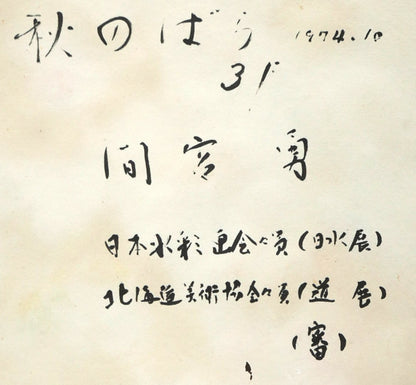 秋のばら 1974.10
31
間宮 勇
日本水彩画会々員(日水展)
北海道美術協会々員(道 展)
(審)